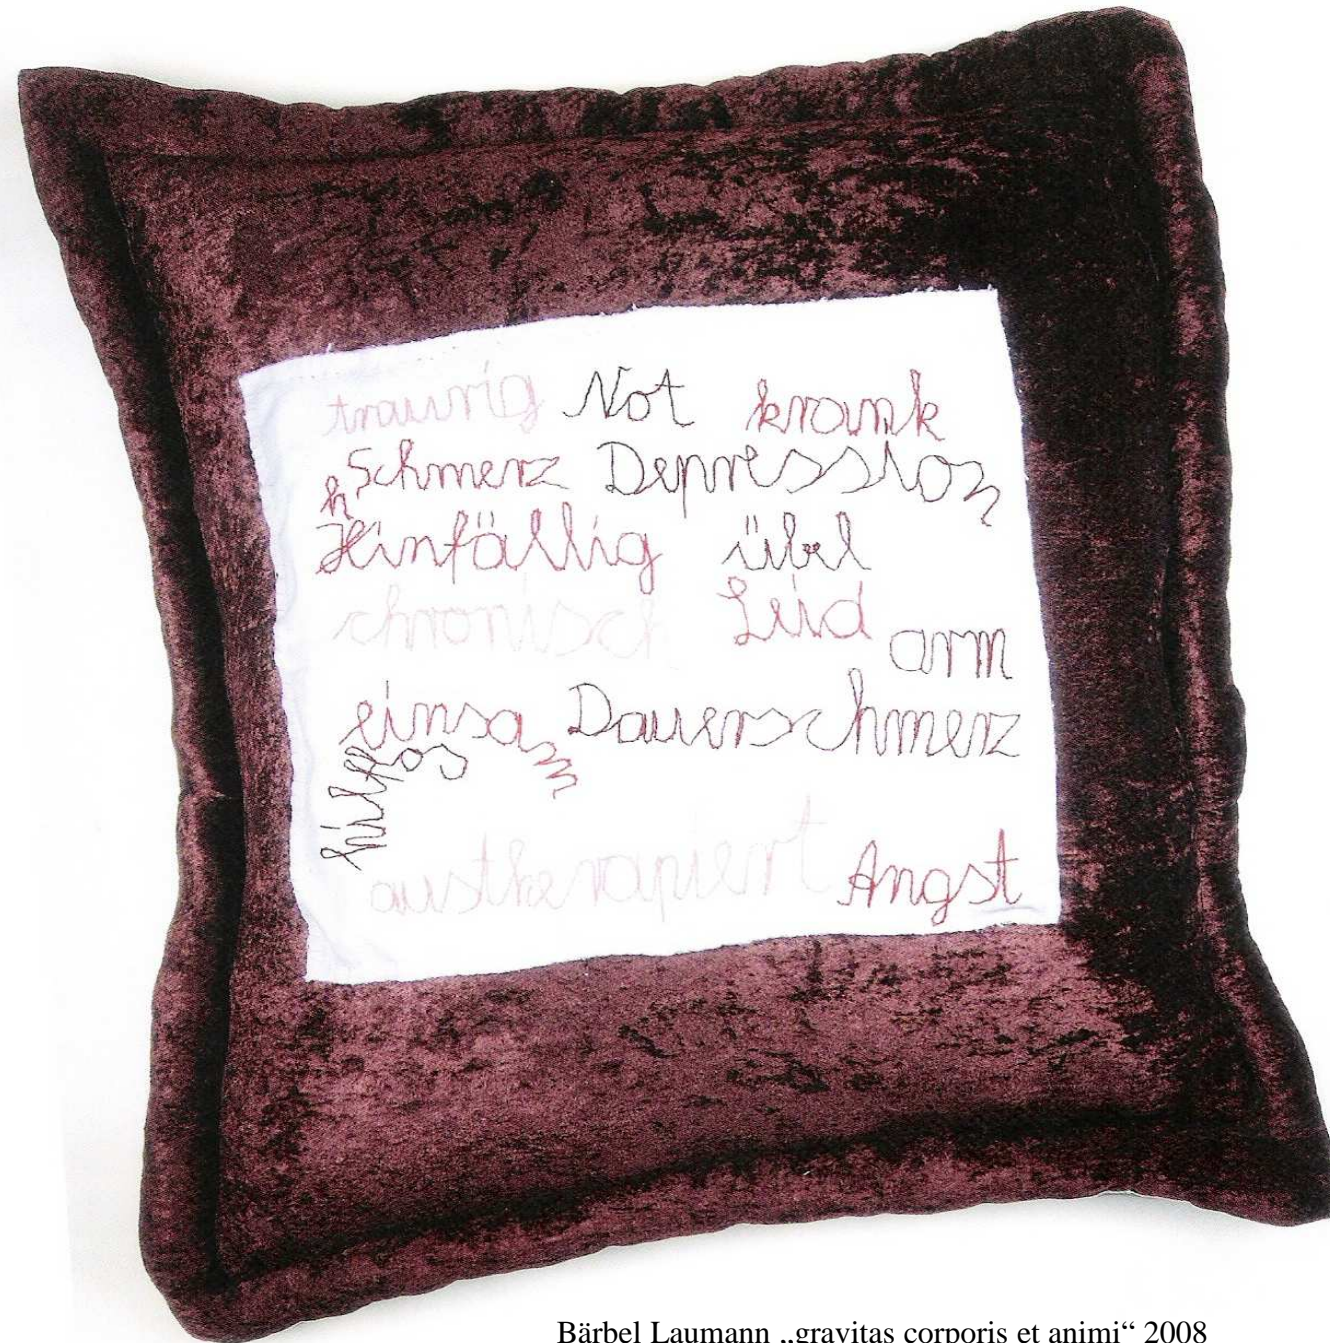 traurig Not krank
Schmerz Depression
h
Hinfällig übel
chronisch Leid arm
einsam Dauerschmerz
hilflos
austherapiert Angst
Bärbel Laumann „gravitas corporis et animi“ 2008